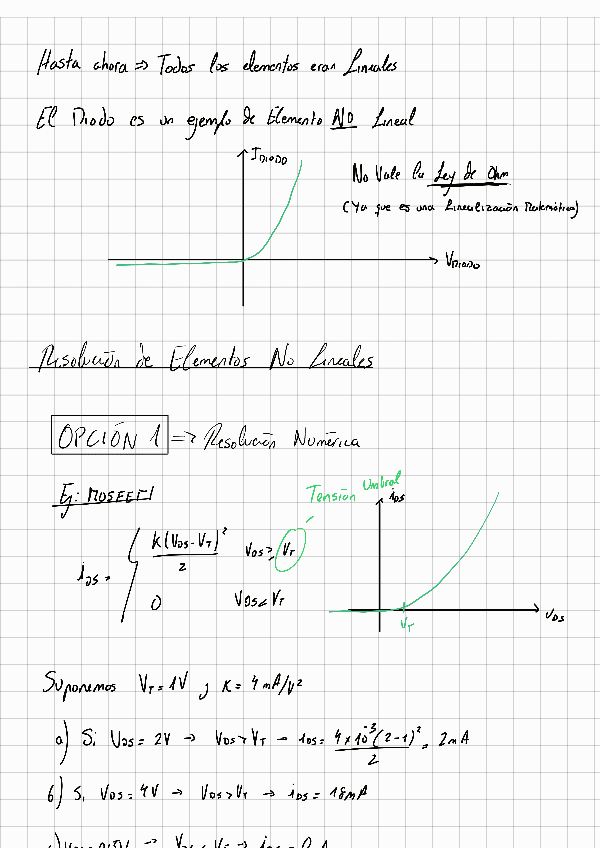 Hasta ahora => Todos los elementos eran Lineales
El Diodo es un ejemplo de Elemento NO Lineal
I_DIODO
No Vale la Ley de Ohm
(Ya que es una Linealización Matemática)
V_DIODO
Resolución de Elementos No Lineales
OPCIÓN 1 => Resolución Numérica
Ej: MOSFET
Tensión Umbral
i_DS
i_DS = { k(V_DS - V_T)² / 2   V_DS ≥ V_T
0   V_DS < V_T
V_T
V_DS
Suponemos V_T = 1V y K = 4 mA/V²
a) Si V_DS = 2V → V_DS > V_T → i_DS = 4x10⁻³(2-1)² / 2 = 2mA
b) Si V_DS = 4V → V_DS > V_T → i_DS = 18mA